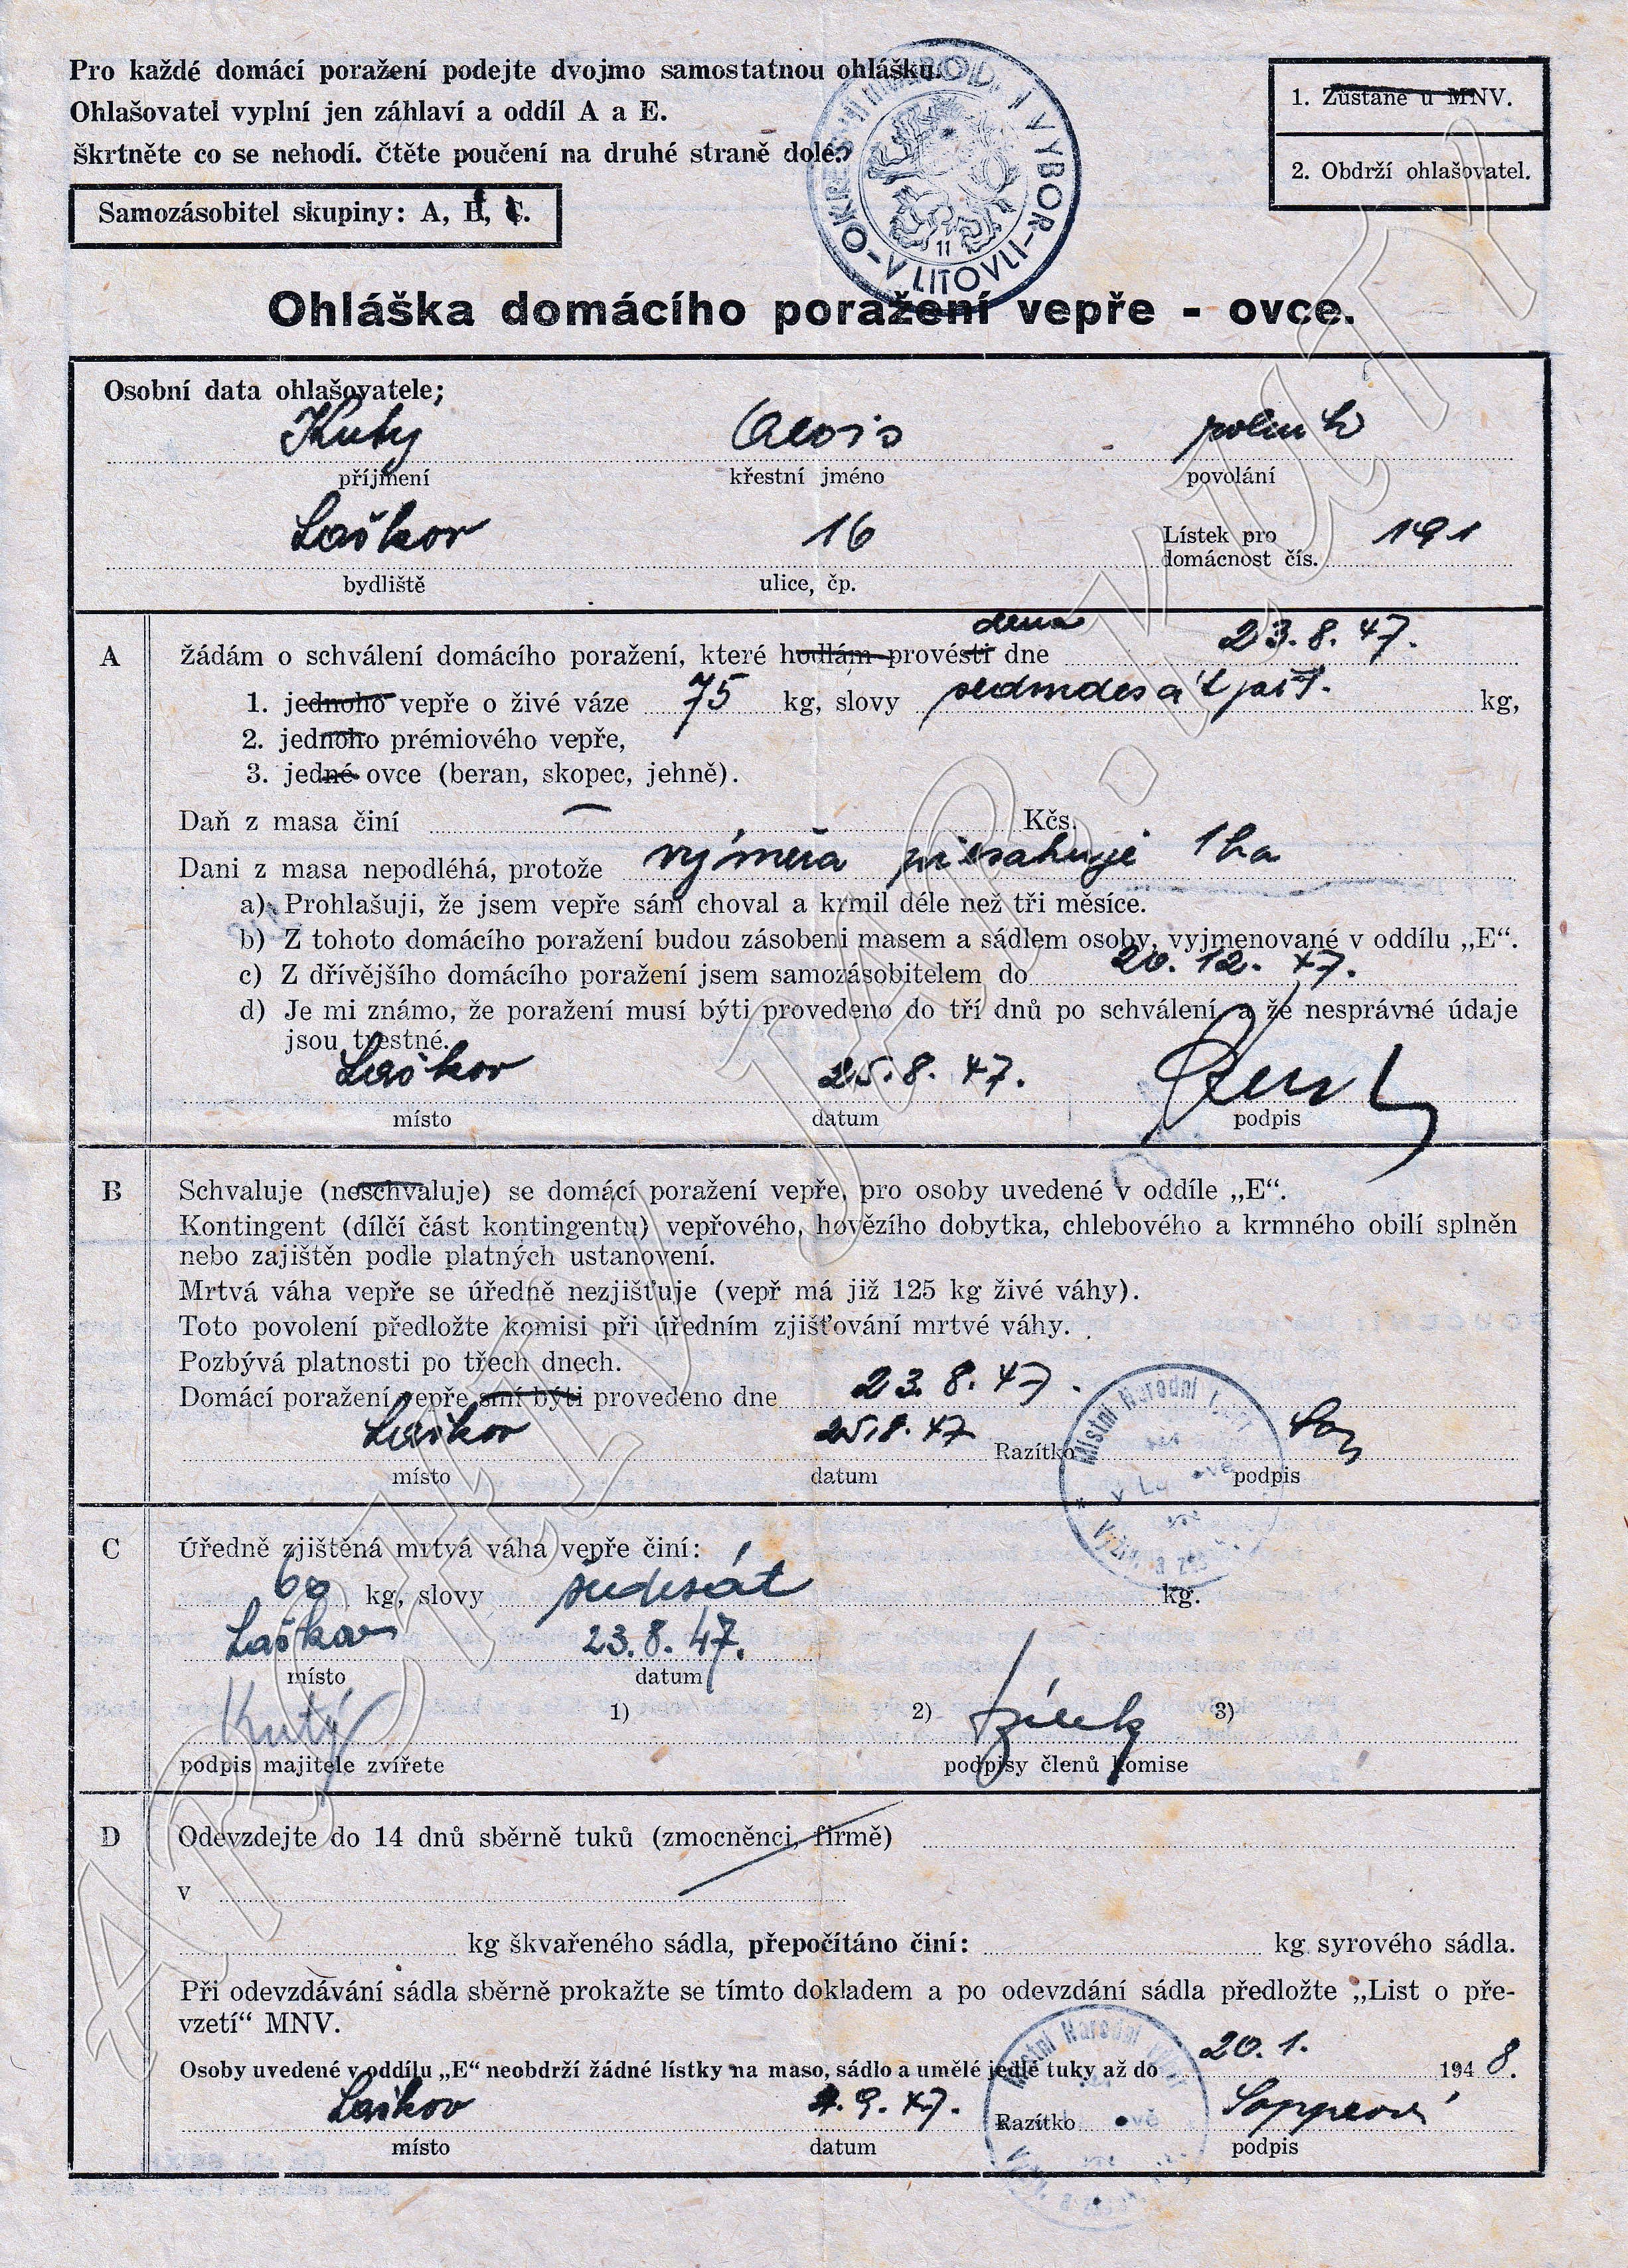 Pro každé domácí poražení podejte dvojmo samostatnou ohlášku.
Ohlašovatel vyplní jen záhlaví a oddíl A a E.
Škrtněte co se nehodí. Čtěte poučení na druhé straně dole.
OKRESNÍ NÁROD. VÝBOR - V LITOVLI -
11
1. Zůstane u MNV.
2. Obdrží ohlašovatel.
Samozásobitel skupiny: A, B, C.
Ohláška domácího poražení vepře - ovce.
Osobní data ohlašovatele;
Kuty Alois rolník
příjmení křestní jméno povolání
Laškov 16 Lístek pro domácnost čís. 191
bydliště ulice, čp.
A Žádám o schválení domácího poražení, které hodlám provésti dne 23. 8. 47.
1. jednoho vepře o živé váze 75 kg, slovy sedmdesát pět kg,
2. jednoho prémiového vepře,
3. jedné ovce (beran, skopec, jehně).
Daň z masa činí — Kčs.
Dani z masa nepodléhá, protože výměra přesahuje 1 ha
a) Prohlašuji, že jsem vepře sám choval a krmil déle než tři měsíce.
b) Z tohoto domácího poražení budou zásobeni masem a sádlem osoby, vyjmenované v oddílu „E“.
c) Z dřívějšího domácího poražení jsem samozásobitelem do 20. 12. 47.
d) Je mi známo, že poražení musí býti provedeno do tří dnů po schválení, a že nesprávné údaje
jsou trestné.
Laškov 25. 8. 47.
místo datum podpis
B Schvaluje (neschvaluje) se domácí poražení vepře, pro osoby uvedené v oddíle „E“.
Kontingent (dílčí část kontingentu) vepřového, hovězího dobytka, chlebového a krmného obilí splněn
nebo zajištěn podle platných ustanovení.
Mrtvá váha vepře se úředně nezjišťuje (vepř má již 125 kg živé váhy).
Toto povolení předložte komisi při úředním zjišťování mrtvé váhy.
Pozbývá platnosti po třech dnech.
Domácí poražení vepře smí býti provedeno dne 23. 8. 47.
Laškov 25. 8. 47 Razítko
místo datum podpis
Místní Národní
C Úředně zjištěná mrtvá váha vepře činí:
60 kg, slovy šedesát kg.
Laškov 23. 8. 47.
místo datum
Kutý 1) 2) 3)
podpis majitele zvířete podpisy členů komise
D Odevzdejte do 14 dnů sběrně tuků (zmocněnci, firmě)
v
kg škvařeného sádla, přepočítáno činí: kg syrového sádla.
Při odevzdávání sádla sběrně prokažte se tímto dokladem a po odevzdání sádla předložte „List o pře-
vzetí“ MNV.
Osoby uvedené v oddílu „E“ neobdrží žádné lístky na maso, sádlo a umělé jedlé tuky až do 20. 1. 1948.
Laškov 4. 9. 47. Razítko
místo datum podpis
Místní Národní
ARCHIV JAR. KUTÝ